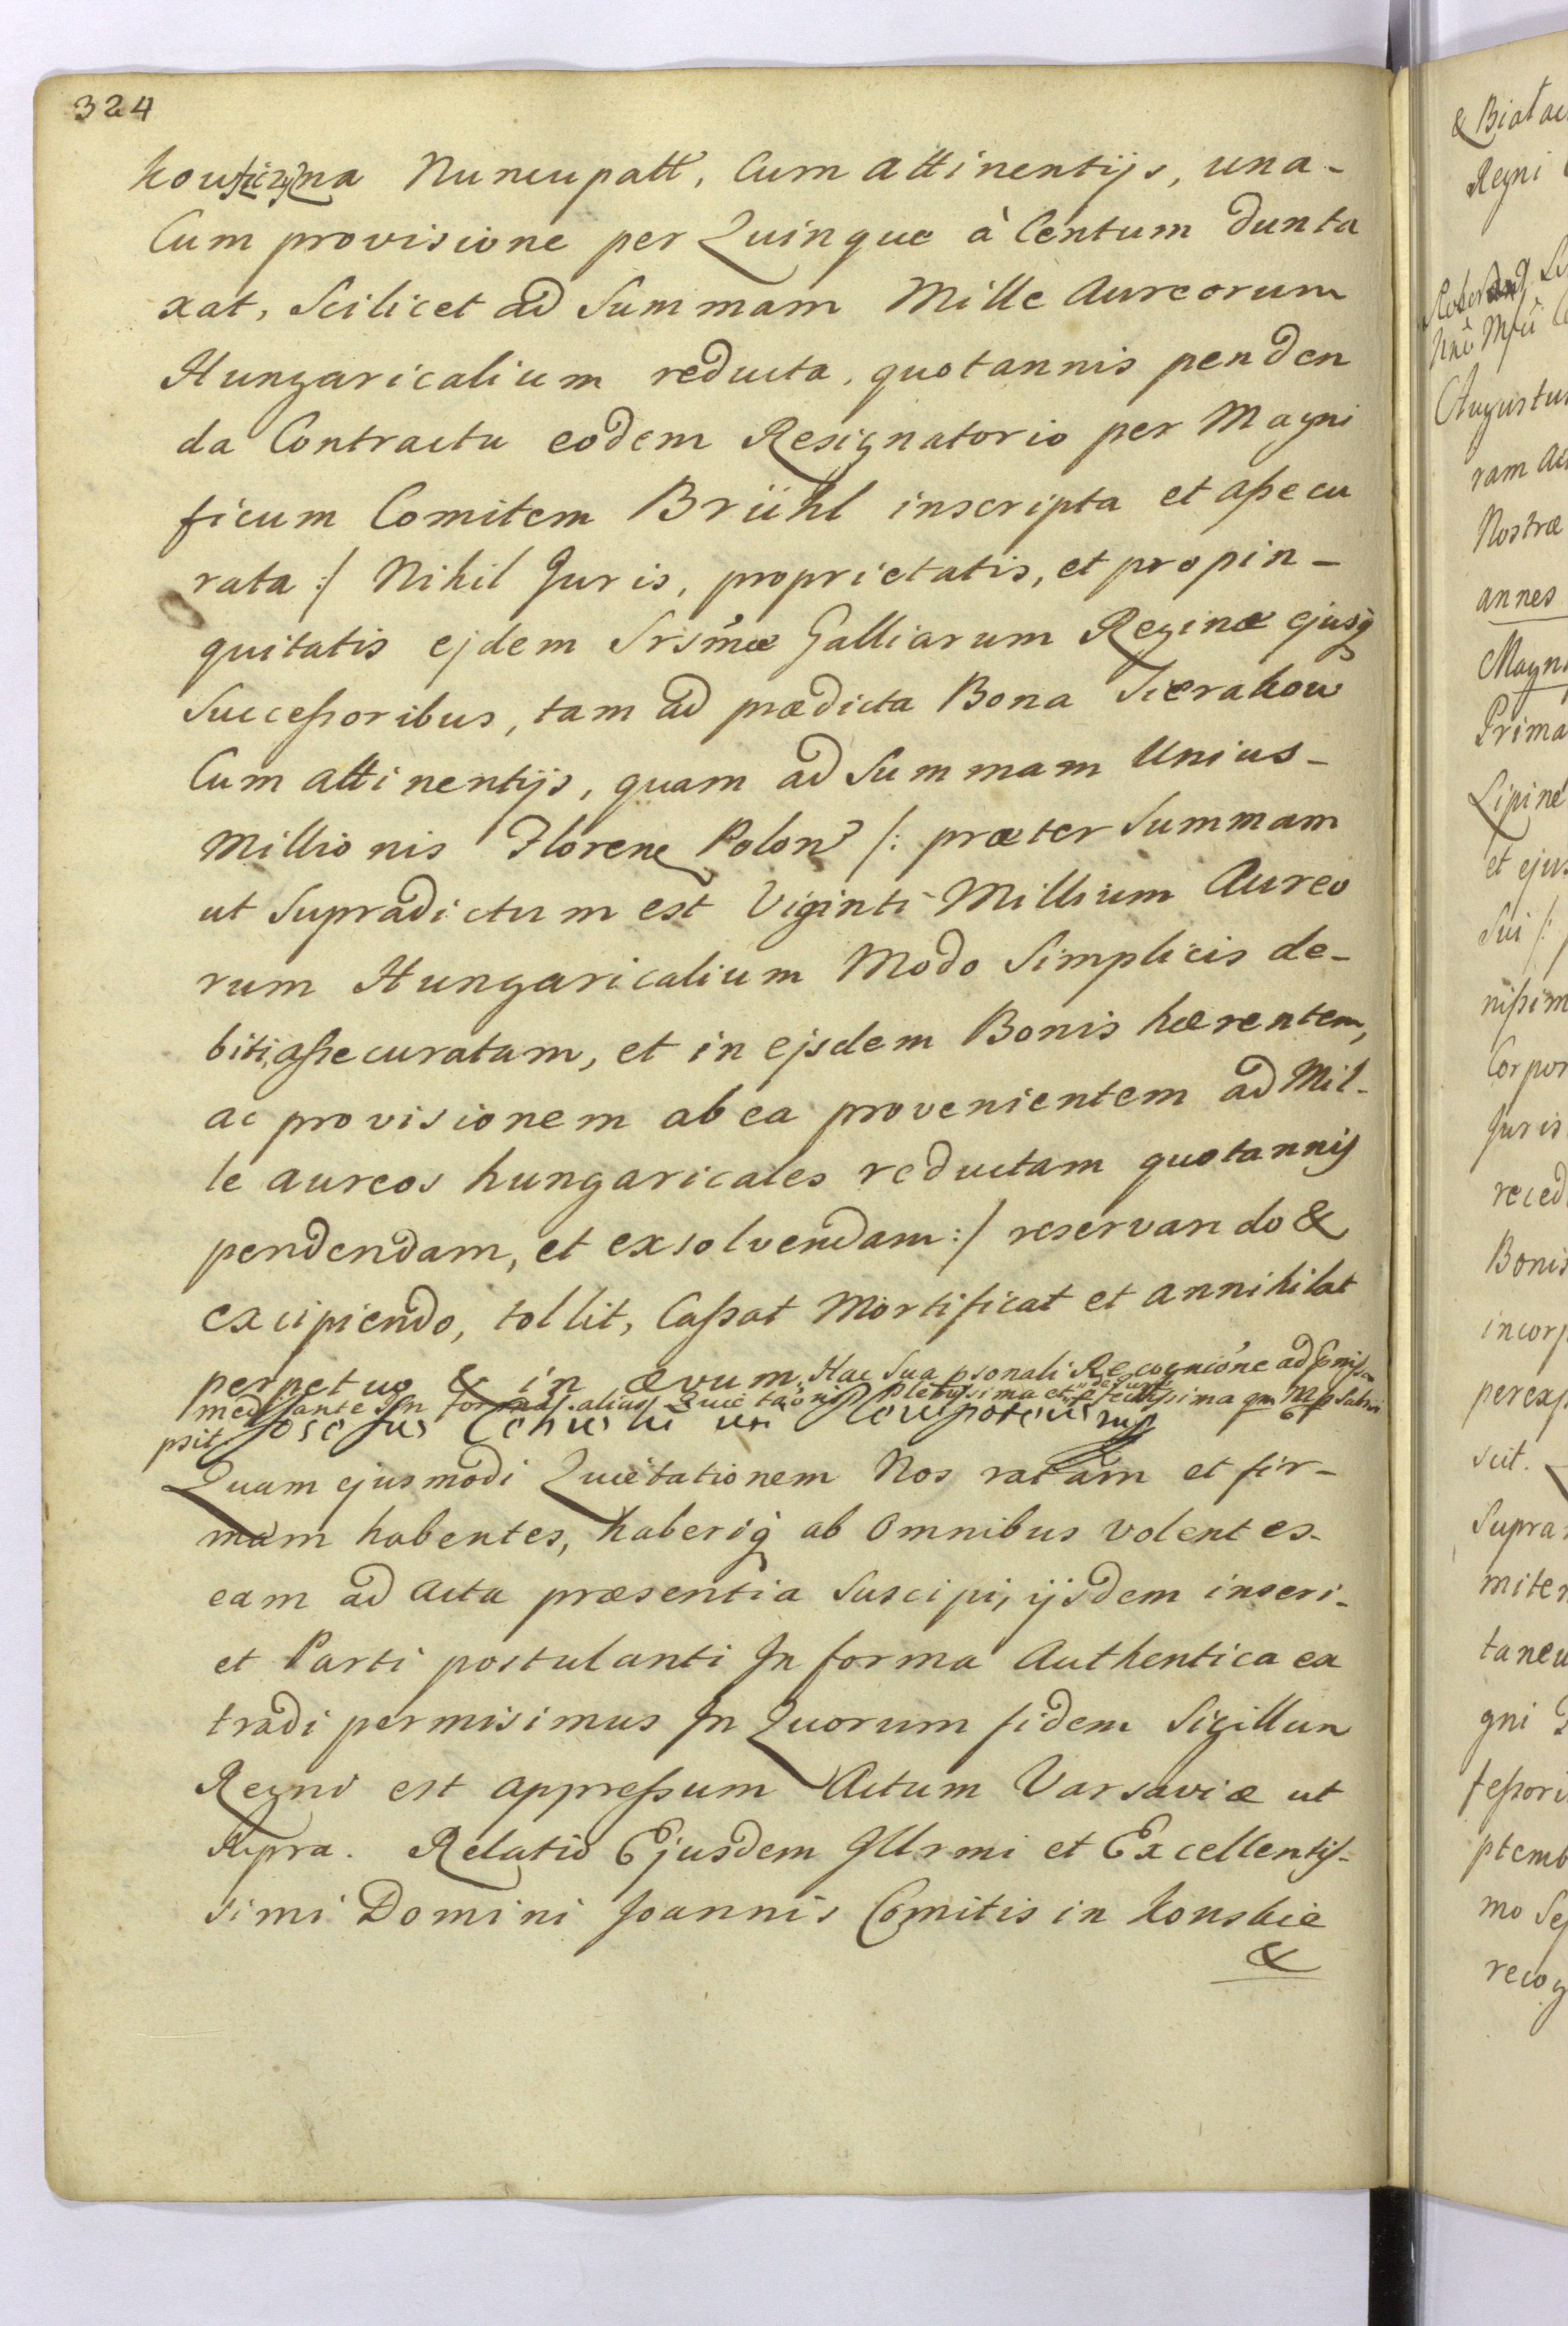 324
kowszczyzna Nuncupatt, Cum attinentijs, una-
Cum provisione per Quinque à Centum dunta
xat, Scilicet ad Summam Mille Aureorum
Hungaricalium reducta, quotannis penden
da Contractu eodem Resignatorio per Magni
ficum Comitem Brühl inscripta et aßecu
rata :/ Nihil Juris, proprietatis, et propin-
quitatis ejdem Srs̃mæ Galliarum Reginæ ejusq́
Succeßoribus, tam ad prædicta Bona Sierakow
Cum attinentijs, quam ad Summam Unius-
Millionis Floren Polon /: præter Summam
ut Supradictum est Viginti Millium Aureo
rum Hungaricalium Modo Simplicis de-
biti, aßecuratam, et in ejsdem Bonis hærentem,
ac provisionem ab ea provenientem ad Mil-
le aureos hungaricales reductam quotannis
pendendam, et exsolvendam :/ reservando &
excipiendo, tollit, Caßat Mortificat et annihilat
perpetuo & in ævum. Hac Sua psonali Recognióne ad
mediante In alias Quietaónis Plenissima et
psit.
Quam ejusmodi Quietationem Nos ratam et fir-
mam habentes, haberiq́ ab Omnibus volentes-
eam ad Acta præsentia Suscipi, ijsdem inseri-
et Parti postulanti In forma Authentica ex
tradi permisimus In Quorum fidem Sigillun
Regni est appreßum Actum Varsaviæ ut
Supra. Relatio Ejusdem Illrmi et Excellentis-
simi Domini Joannis Comitis in Konskie
&
& Biał
Regni
Augustus
ram
Nostræ
annes
Magni
Prima
Lipine
et ejus
Sui /:
nißim
Corpor
Juris
reced
Bonis
incorp
perexp
scit.
Supra
miten
taneu
gni
feßori
ptemb
mo Sep
recog